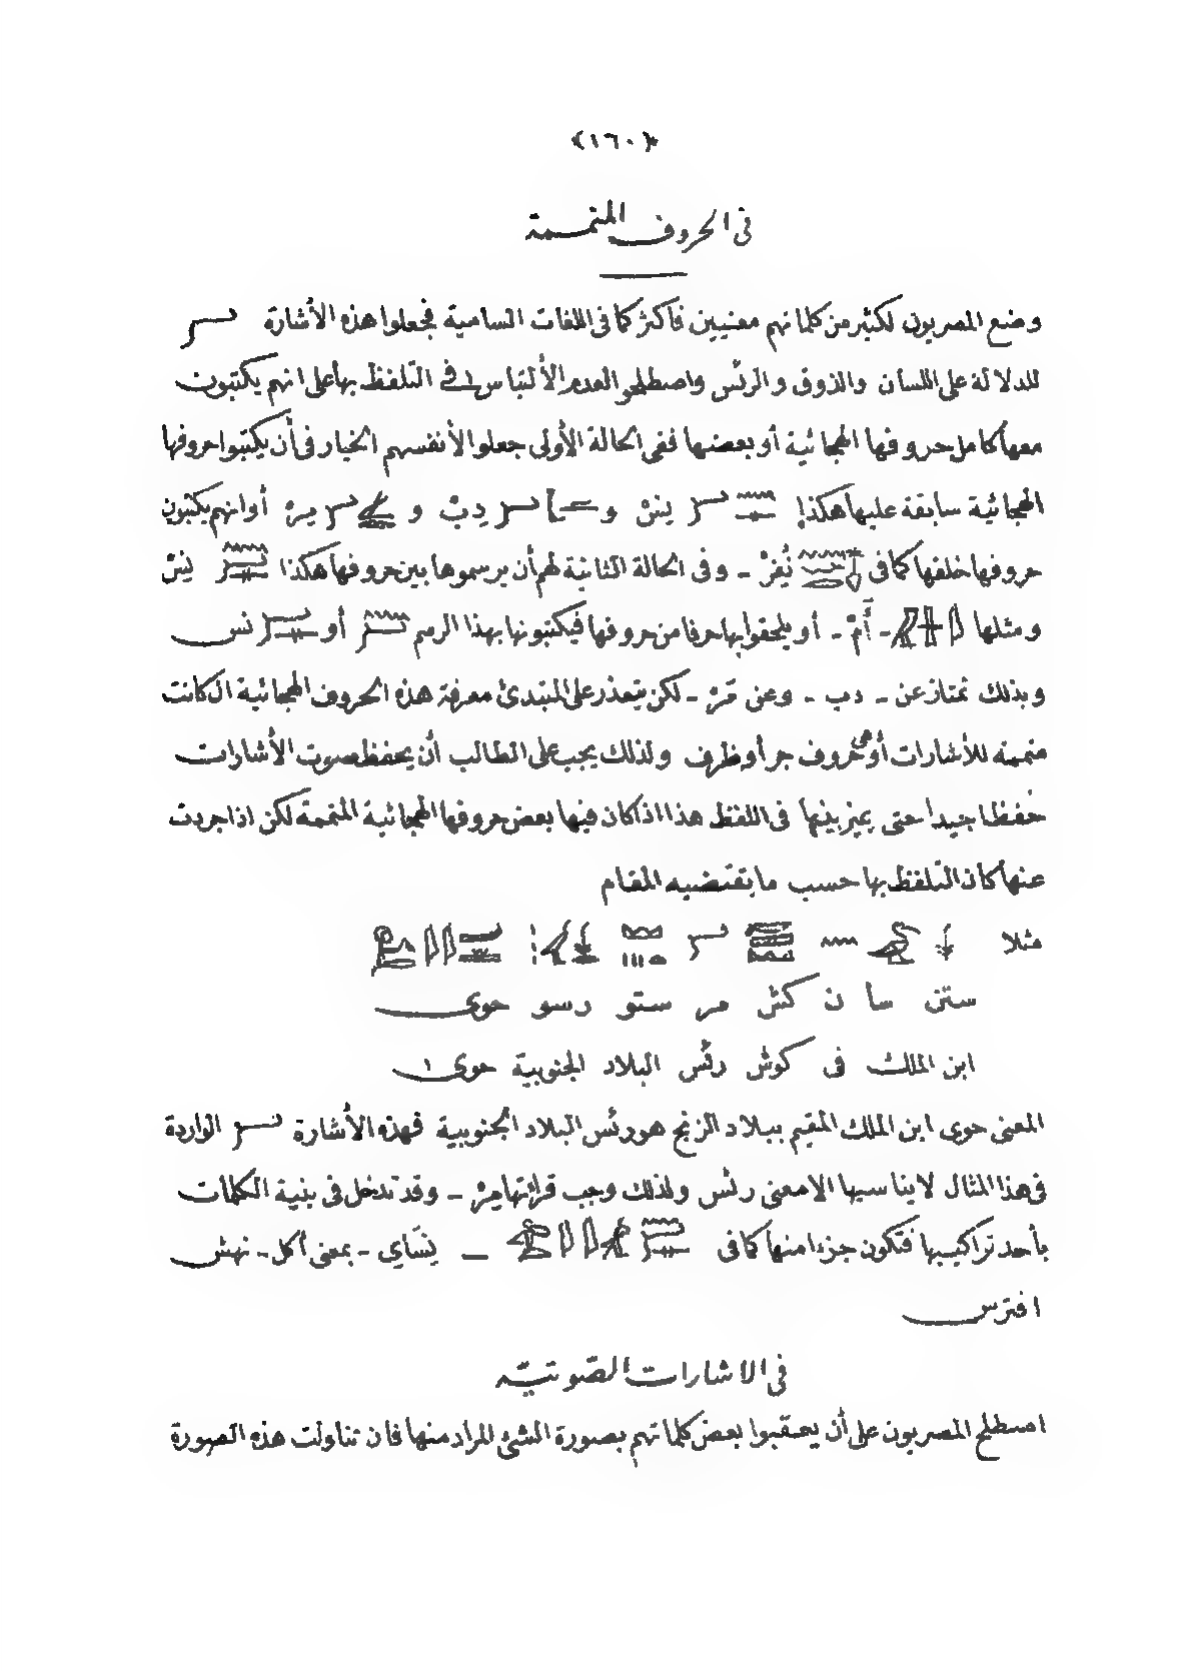 ﴿١٦٠﴾
فى الحروف المتممة
وضع المصريون لكثير من كلماتهم معنيين فأكثر كما فى اللغات السامية فجعلوا هذه الأشارة
للدلالة على اللسان والذوق والرئس واصطلحوا لعدم الألتباس فى التلفظ بها على انهم يكتبون
معها كامل حروفها الهجائية أو بعضها ففى الحالة الأولى جعلوا لأنفسهم الخيار فى أن يكتبوا حروفها
الهجائية سابقة عليها هكذا نِسْ و دِبْ و مِرْ أو انهم يكتبون
حروفها خلفها كما فى نُفِرْ ـ وفى الحالة الثانية لهم أن يرسموها بين حروفها هكذا نِسْ
ومثلها ـ أَمْ ـ أو يلحقوا بها حرفا من حروفها فيكتبونها بهذا الرسم أو نس
وبذلك تمتاز عن ـ دب ـ وعن مَرْ ـ لكن يتعذر على المبتدئ معرفة هذه الحروف الهجائية ان كانت
متممة للأشارات أو هى حروف جر أو ظرف ولذلك يجب على الطالب أن يحفظ صوت الأشارات
حفظا جيدا حتى يميز بينها فى اللفظ هذا اذا كان فيها بعض حروفها الهجائية المتممة لكن اذا جردت
عنها كان التلفظ بها حسب ما يقتضيه المقام
مثلا
ستن سا ن كش مر ستو رسو حوى
ابن الملك فى كوش رئس البلاد الجنوبية حوى ١
المعنى حوى ابن الملك المقيم ببلاد الزنج هو رئس البلاد الجنوبية فهذه الأشارة الواردة
فى هذا المثال لا يناسبها الا معنى رئس ولذلك وجب قرائتها مِرْ ـ وقد تدخل فى بنية الكلمات
بأحد تراكيبها فتكون جزءا منها كما فى ـ نِسَاي ـ بمعنى أكل ـ نهش
افترس
فى الاشارات الصّوتيّه
اصطلح المصريون على أن يعقبوا بعض كلماتهم بصورة الشئ المراد منها فان تناولت هذه الصورة